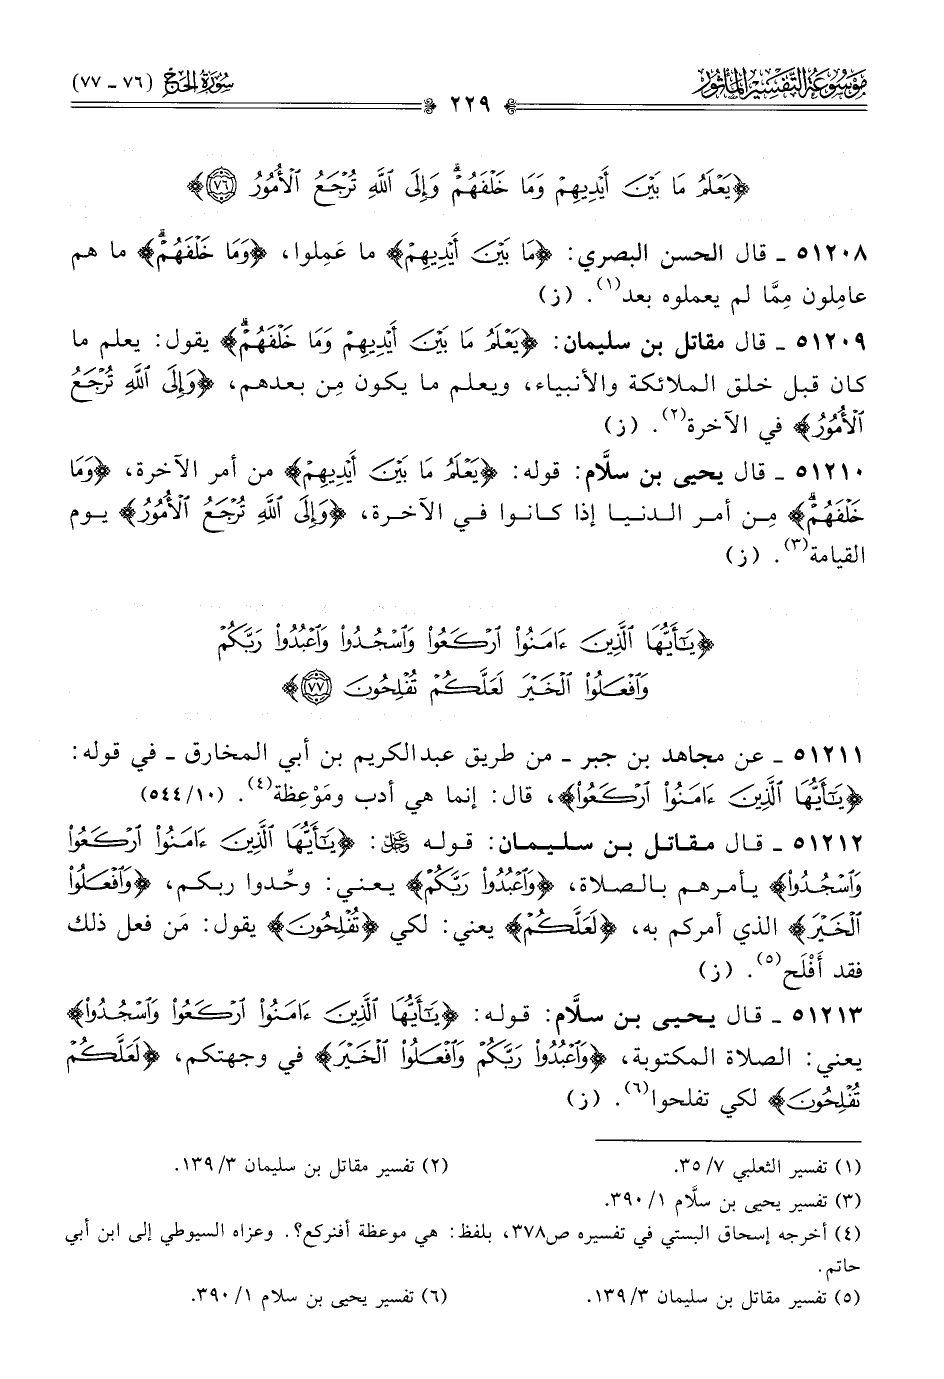 مَوْسُوعَة التَّفْسِير المَأْثُور
سُورَةُ الحَجّ (٧٦ - ٧٧)
٢٢٩
﴿يَعْلَمُ مَا بَيْنَ أَيْدِيهِمْ وَمَا خَلْفَهُمْۗ وَإِلَى ٱللَّهِ تُرْجَعُ ٱلْأُمُورُ ٧٦﴾
٥١٢٠٨ - قال الحسن البصري: ﴿مَا بَيْنَ أَيْدِيهِمْ﴾ ما عَمِلوا، ﴿وَمَا خَلْفَهُمْۗ﴾ ما هم
عامِلون مِمَّا لم يعملوه بعد(١). (ز)
٥١٢٠٩ - قال مقاتل بن سليمان: ﴿يَعْلَمُ مَا بَيْنَ أَيْدِيهِمْ وَمَا خَلْفَهُمْۗ﴾ يقول: يعلم ما
كان قبل خلق الملائكة والأنبياء، ويعلم ما يكون مِن بعدهم، ﴿وَإِلَى ٱللَّهِ تُرْجَعُ
ٱلْأُمُورُ﴾ في الآخرة(٢). (ز)
٥١٢١٠ - قال يحيى بن سلَّام: قوله: ﴿يَعْلَمُ مَا بَيْنَ أَيْدِيهِمْ﴾ من أمر الآخرة، ﴿وَمَا
خَلْفَهُمْۗ﴾ مِن أمر الدنيا إذا كانوا في الآخرة، ﴿وَإِلَى ٱللَّهِ تُرْجَعُ ٱلْأُمُورُ﴾ يوم
القيامة(٣). (ز)
﴿يَـٰٓأَيُّهَا ٱلَّذِينَ ءَامَنُوا۟ ٱرْكَعُوا۟ وَٱسْجُدُوا۟ وَٱعْبُدُوا۟ رَبَّكُمْ
وَٱفْعَلُوا۟ ٱلْخَيْرَ لَعَلَّكُمْ تُفْلِحُونَ ٧٧﴾
٥١٢١١ - عن مجاهد بن جبر - من طريق عبدالكريم بن أبي المخارق - في قوله:
﴿يَـٰٓأَيُّهَا ٱلَّذِينَ ءَامَنُوا۟ ٱرْكَعُوا۟﴾، قال: إنما هي أدب ومَوْعِظة(٤). (٥٤٤/١٠)
٥١٢١٢ - قال مقاتل بن سليمان: قوله ﷻ: ﴿يَـٰٓأَيُّهَا ٱلَّذِينَ ءَامَنُوا۟ ٱرْكَعُوا۟
وَٱسْجُدُوا۟﴾ يأمرهم بالصلاة، ﴿وَٱعْبُدُوا۟ رَبَّكُمْ﴾ يعني: وحِّدوا ربكم، ﴿وَٱفْعَلُوا۟
ٱلْخَيْرَ﴾ الذي أمركم به، ﴿لَعَلَّكُمْ﴾ يعني: لكي ﴿تُفْلِحُونَ﴾ يقول: مَن فعل ذلك
فقد أَفْلَح(٥). (ز)
٥١٢١٣ - قال يحيى بن سلَّام: قوله: ﴿يَـٰٓأَيُّهَا ٱلَّذِينَ ءَامَنُوا۟ ٱرْكَعُوا۟ وَٱسْجُدُوا۟﴾
يعني: الصلاة المكتوبة، ﴿وَٱعْبُدُوا۟ رَبَّكُمْ وَٱفْعَلُوا۟ ٱلْخَيْرَ﴾ في وجهتكم، ﴿لَعَلَّكُمْ
تُفْلِحُونَ﴾ لكي تفلحوا(٦). (ز)
(١) تفسير الثعلبي ٣٥/٧.
(٢) تفسير مقاتل بن سليمان ١٣٩/٣.
(٣) تفسير يحيى بن سلَّام ٣٩٠/١.
(٤) أخرجه إسحاق البستي في تفسيره ص٣٧٨، بلفظ: هي موعظة أفنركع؟. وعزاه السيوطي إلى ابن أبي
حاتم.
(٥) تفسير مقاتل بن سليمان ١٣٩/٣.
(٦) تفسير يحيى بن سلام ٣٩٠/١.